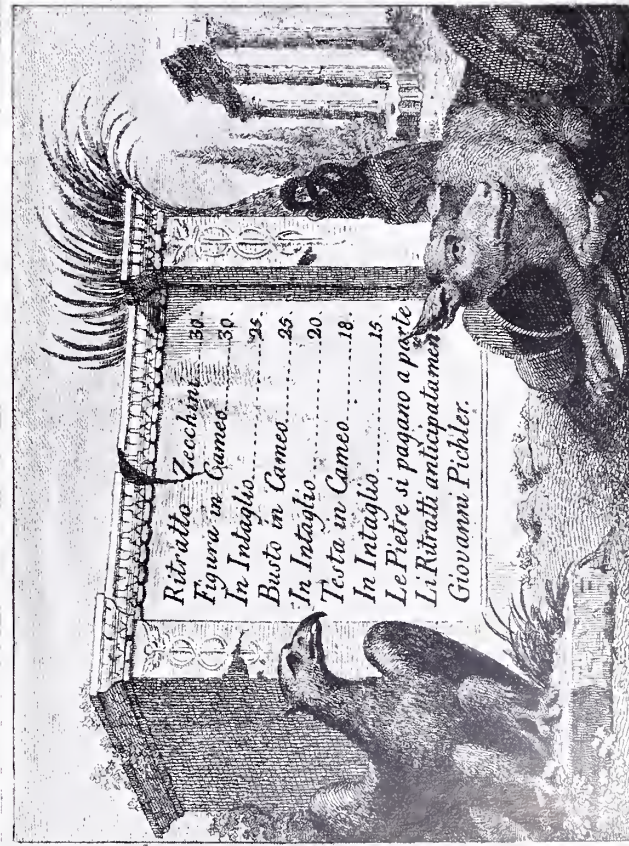 Ritratto Zecchini....30.
Figura in Cameo.......30.
In Intaglio..............25.
Busto in Cameo........25.
In Intaglio..............20.
Testa in Cameo........18.
In Intaglio..............15.
Le Pietre si pagano a parte
Li Ritratti anticipatamen
Giovanni Pichler.